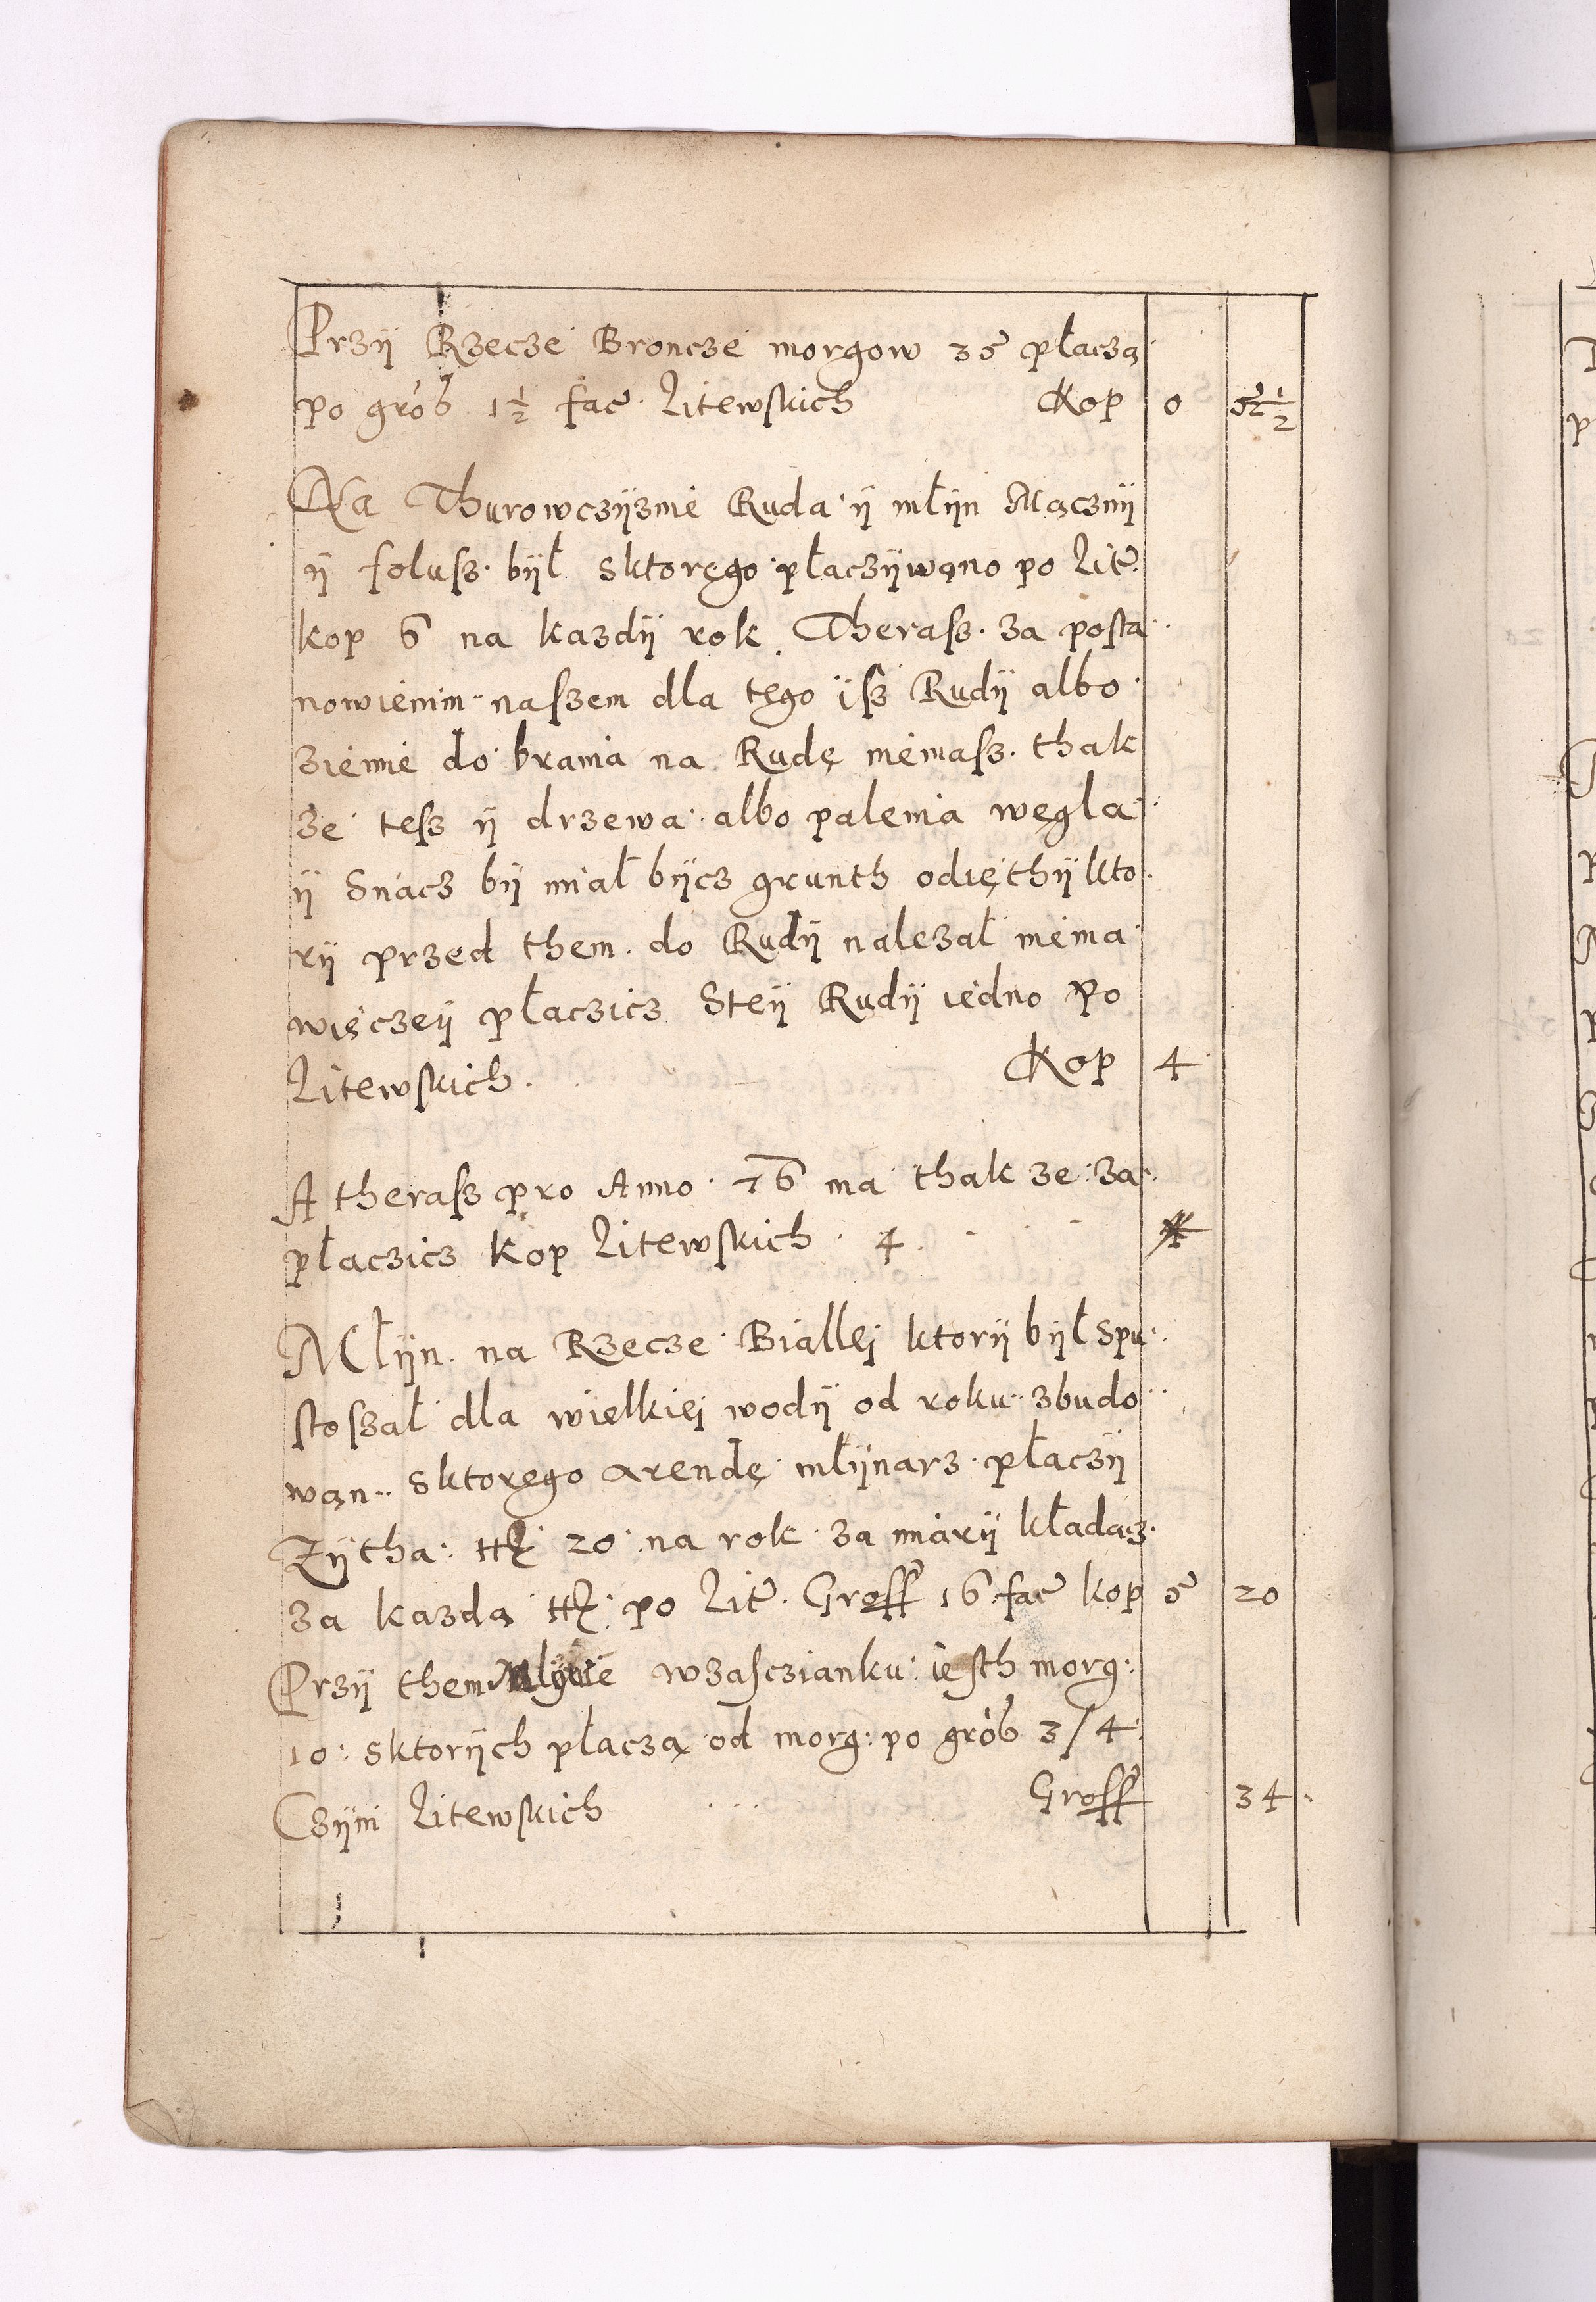 Przÿ Rzecze Broncze morgow 35 płaczą
po gróß 1½ fac. Litewskich Kop 0 52½
Na Thurowczÿznie Ruda ÿ młÿn Mączny
ÿ folusz. bÿł sktoręgo płaczÿwąno po Lit.
kop 6 na kazdÿ rok. Therasz. za posta
nowienim naszem dla tęgo ÿsz Rudÿ albo
ziemie do brania na Rudę niemasz. thak
ze tesz ÿ drzewa albo palenia węgla
ÿ Snacz bÿ miał bÿcz grunth odięthÿ kto
rÿ przed them. do Rudÿ nalezał niema
więczeÿ płaczicz Steÿ Rudÿ iedno Po
Litewskich. Kop 4
A therasz pro Anno 76 ma thak ze za
płaczicz Kop Litewskich 4.
Młÿn na Rzecze Białlęj ktorÿ bÿł spu
stoszał dla wielkięj wodÿ od roku zbudo
wąn sktoręgo arendę młÿnarz płaczÿ
Zÿtha: 20 na rok za miarÿ kładącz
za kazdą po Lit. Grosz 16 fac kop 5 20
Przÿ them Mlÿnie wzascianku iesth morg:
10: sktorÿch płaczą od morg: po gróß 3/4
Czÿni Litewskich Grosz 34